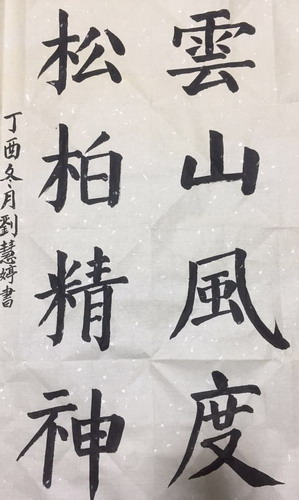 雲山風度
松柏精神
丁酉冬月劉慧婷書